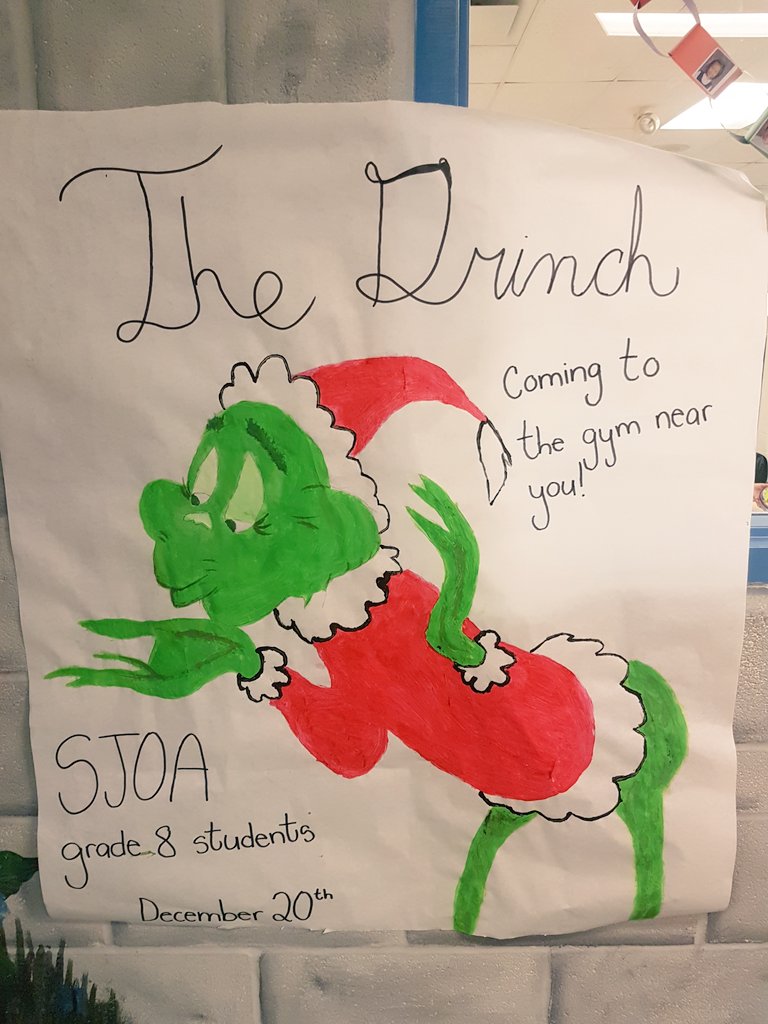 The Drinch
Coming to
the gym near
you!
SJOA
grade 8 students
December 20th